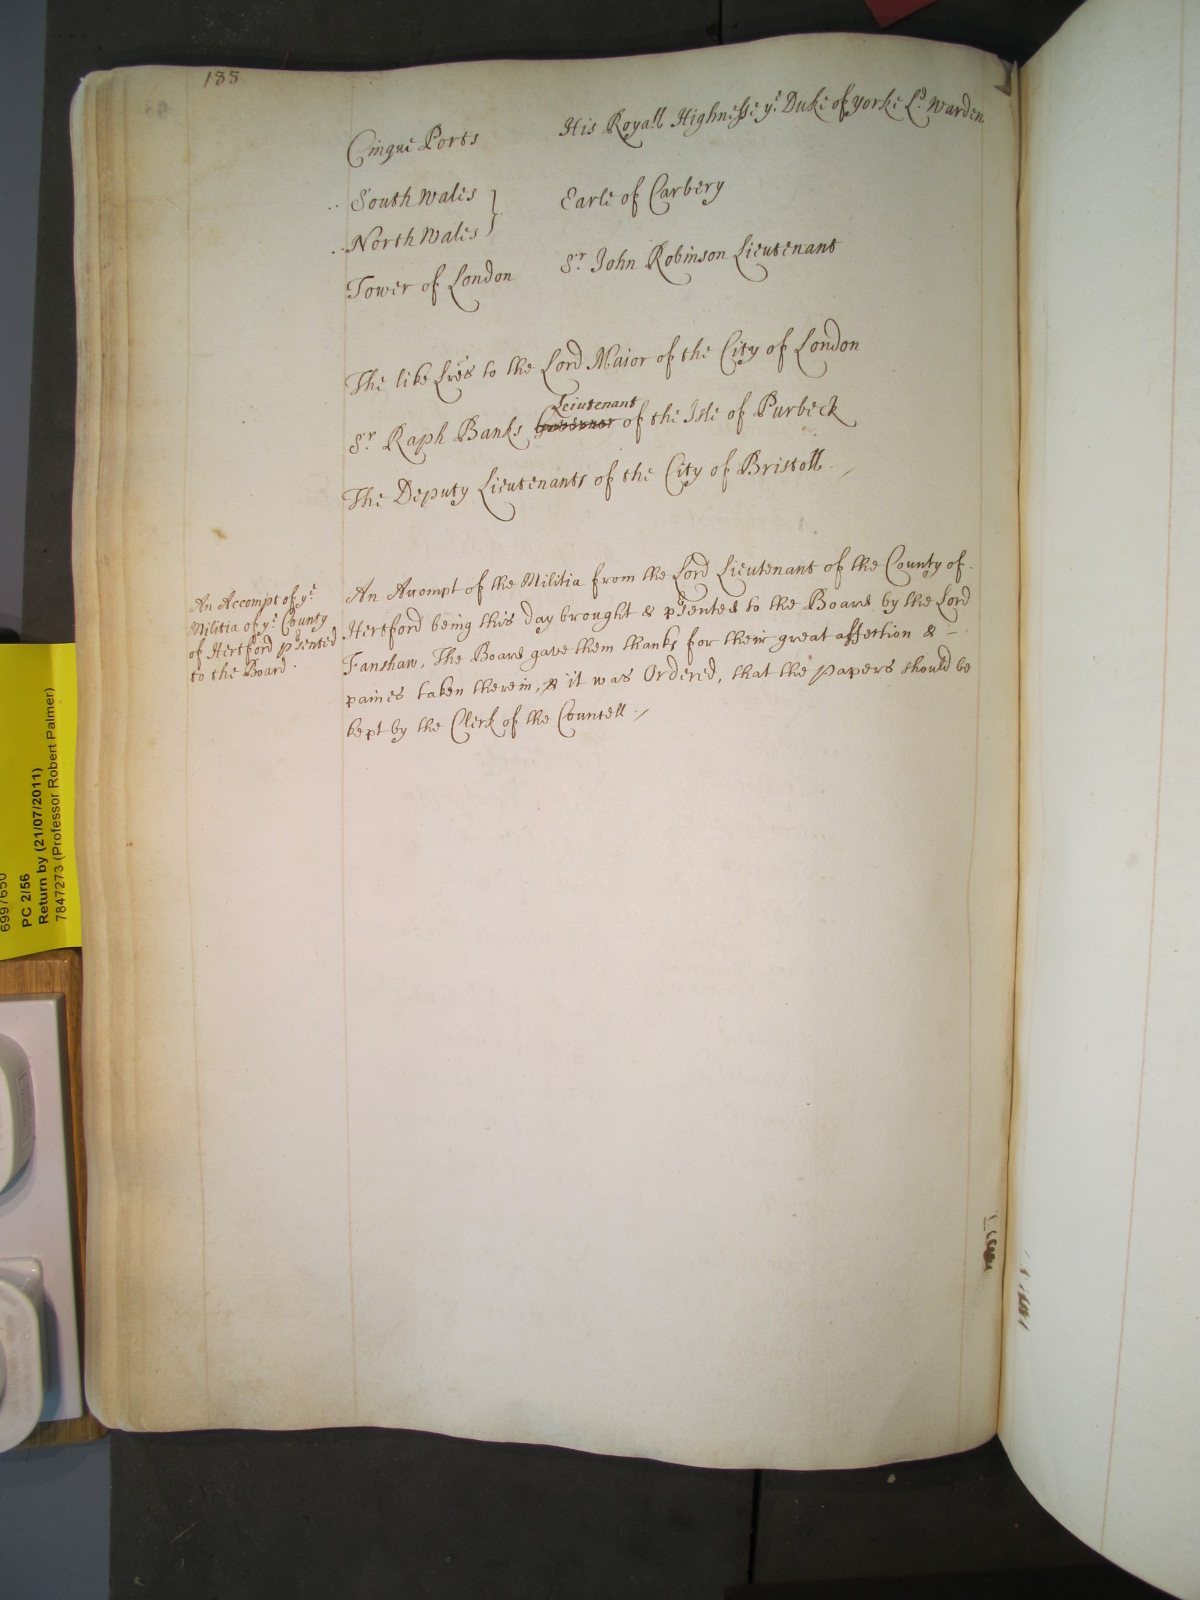 188
Cinque Ports His Royall Highnesse yͤ Duke of yorke Lᵈ Warden
South Wales } Earle of Carbery
North Wales
Tower of London Sʳ John Robinson Lieutenant
The like Lr̃es to the Lord Maior of the City of London
Leiutenant
Sʳ Raph Banks Governor of the Isle of Purbeck
The Deputy Lieutenants of the City of Bristoll
An Accompt of yͤ
Militia of yͤ County
of Hertford pʳsented
to the Board.
An Accompt of the Militia from the Lord Lieutenant of the County of
Hertford being this day brought & pʳsented to the Board by the Lord
Fanshaw, The Board gave them thanks for their great affection & -
paines taken therein, & it was Ordered, that the papers should be
kept by the Clerk of the Councell ./
6997650
PC 2/56
Return by (21/07/2011)
7847273 (Professor Robert Palmer)